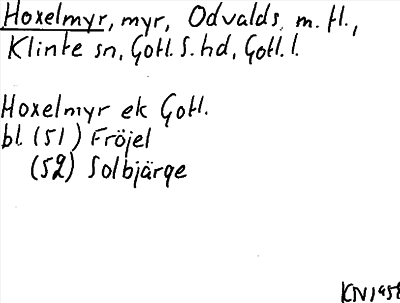 Hoxelmyr, myr, Odvalds m. fl.,
Klinte sn, Gotl. S. hd, Gotl. l.
Hoxelmyr ek Gotl.
bl. (51) Fröjel
(52) Solbjärge